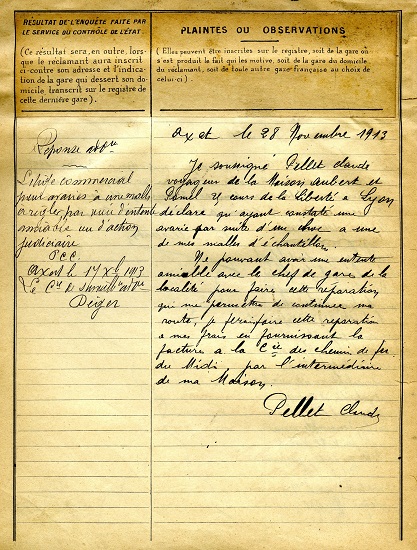 RÉSULTAT DE L'ENQUÊTE FAITE PAR
LE SERVICE DU CONTRÔLE DE L'ÉTAT
(Ce résultat sera, en outre, lors-
que le réclamant aura inscrit
ci-contre son adresse et l'indica-
tion de la gare qui dessert son do-
micile transcrit sur le registre de
cette dernière gare).
Réponse
Litige commercial
pour avaries à une malle
à régler par voie d'entente
amiable ou d'action
judiciaire
P.C.C.
Axat le 17 Xbre 1913
Le Cre de Surveillance
Déger
PLAINTES OU OBSERVATIONS
(Elles peuvent être inscrites sur le registre, soit de la gare où
s'est produit le fait qui les motive, soit de la gare du domicile
du réclamant, soit de toute autre gare française au choix de
celui-ci.)
Axat le 28 Novembre 1913
Je soussigné Pellet Claude
voyageur de la Maison Aubert et
cours de la Liberté à Lyon
déclare qu'ayant constaté une
avarie par suite d'un choc a une
de mes malles d'échantillons
Ne pouvant avoir une entente
amiable avec le chef de gare de la
localité pour faire cette réparation
qui me permettre de continuer ma
route, je ferai faire cette réparation
a mes frais en fournissant la
facture a la Cie des chemin de fer
du Midi par l'intermédiaire
de ma Maison.
Pellet Claude